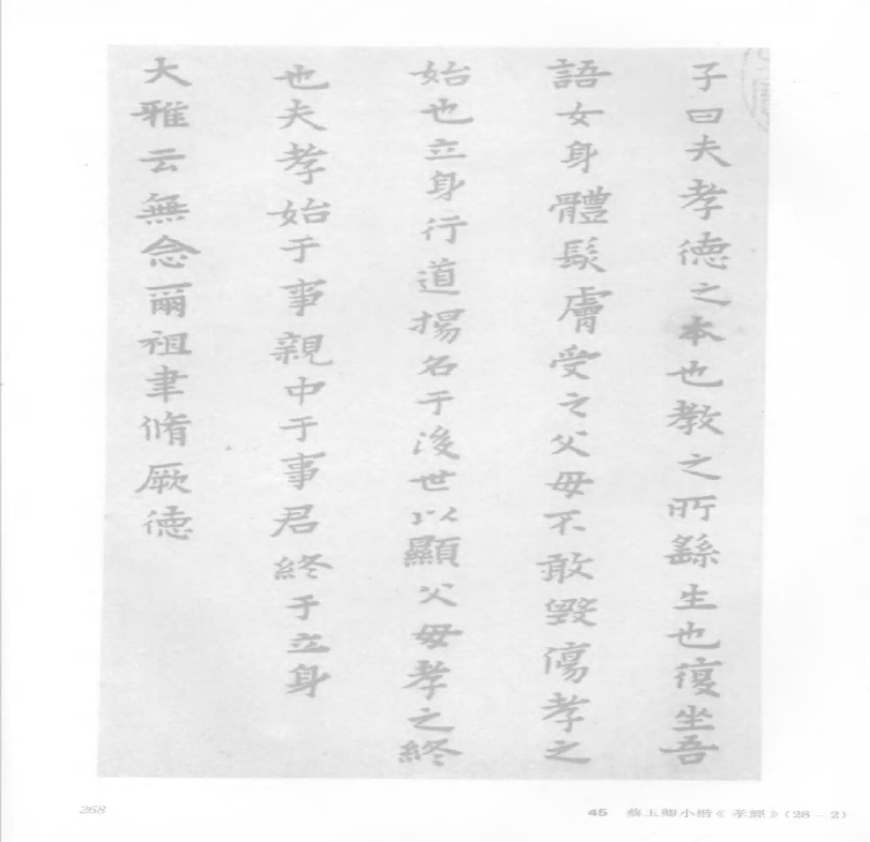 子曰夫孝德之本也教之所繇生也復坐吾
語女身體髮膚受之父母不敢毀傷孝之
始也立身行道揚名于後世以顯父母孝之終
也夫孝始于事親中于事君終于立身
大雅云無念爾祖聿脩厥德
268
45 蘇玉卿小楷《孝經》(28－2)